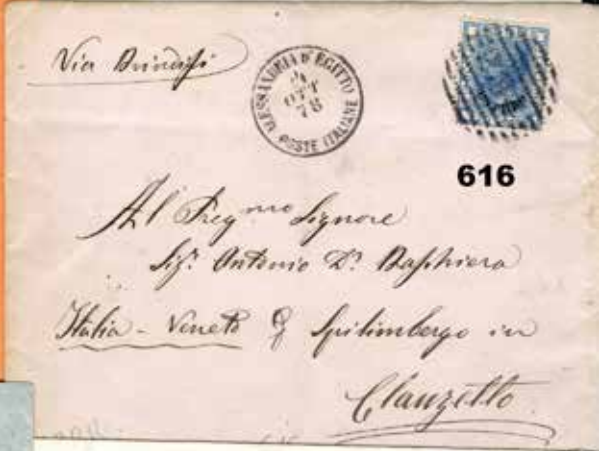 Via Brindisi
ALESSANDRIA D'EGITTO
4
OTT
78
POSTE ITALIANE
616
Al Preg.mo Signore
Sig.r Antonio D.r
Italia - Veneto Spilimbergo in
Clauzetto